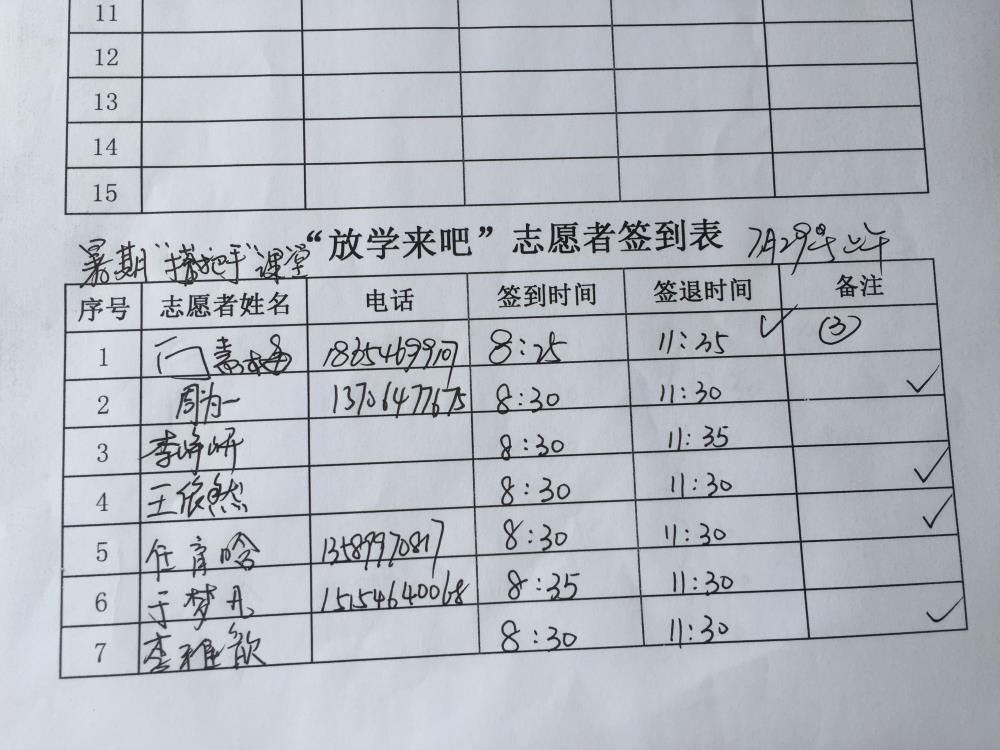 11
12
13
14
15
暑期“搭把手”课堂 “放学来吧”志愿者签到表 7月29号上午
序号 志愿者姓名 电话 签到时间 签退时间 备注
1 8:25 11:35 ✓ (3)
2 周为一 13706477675 8:30 11:30 ✓
3 李峥妍 8:30 11:35
4 王依然 8:30 11:30 ✓
5 任育晗 13589970817 8:30 11:30 ✓
6 于梦凡 15154640068 8:35 11:30
7 李雅歆 8:30 11:30 ✓